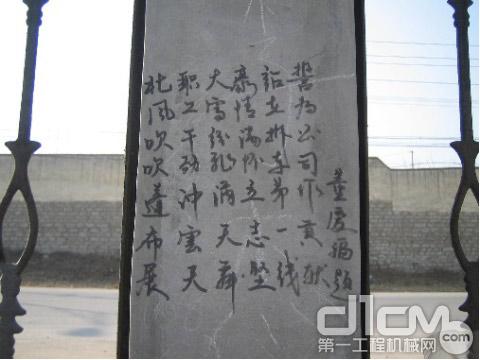 北风吹吹蓬布展
职工干劲冲雲天
大雪纷飞满天舞
豪情满怀立志坚
站在拆车第一线
誓为公司作贡献
董慶福题
d1cm.com
第一工程机械网